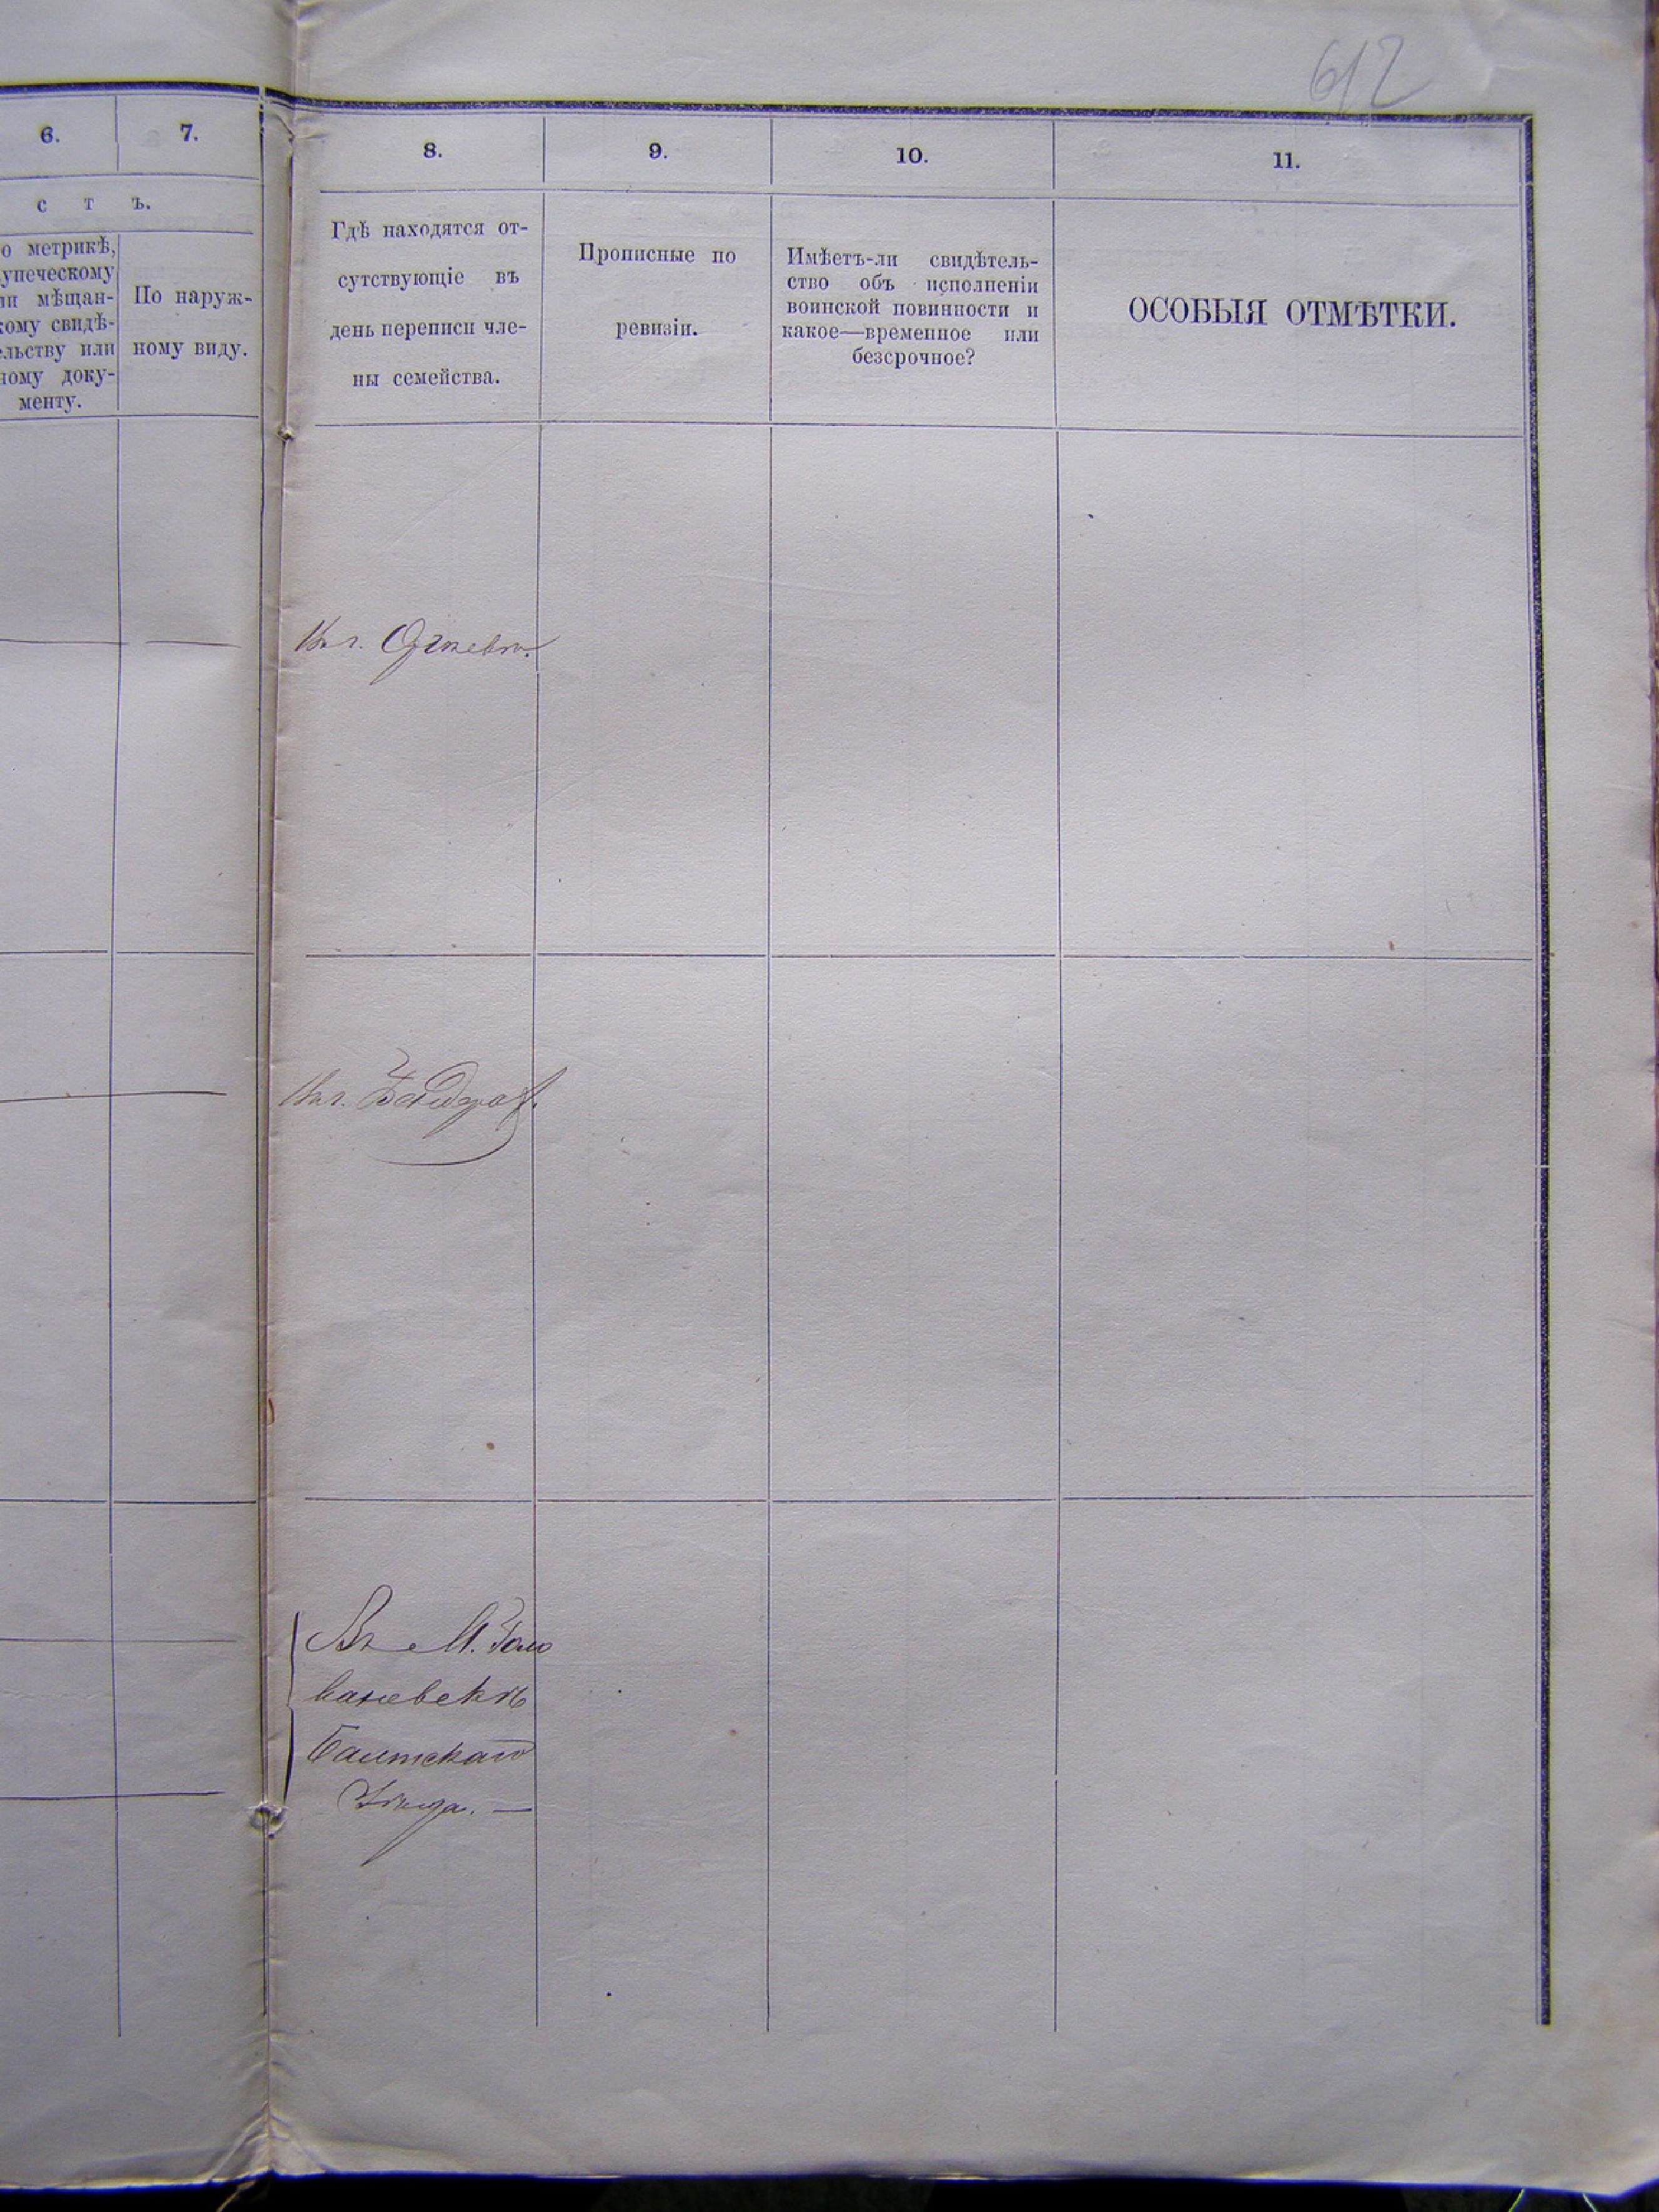 612
6.
7.
8.
9.
10.
11.
с т ъ.
о метрикѣ,
упеческому
ли мѣщан-
кому свидѣ-
ельству или
ному доку-
менту.
По наруж-
ному виду.
Гдѣ находятся от-
сутствующіе въ
день переписи чле-
ны семейства.
Прописные по
ревизіи.
Имѣетъ-ли свидѣтель-
ство объ исполненіи
воинской повинности и
какое—временное или
безсрочное?
ОСОБЫЯ ОТМѢТКИ.
Въ г.
Въ г.
Въ М. Голо
ваневскѣ
Балтскаго
Уѣзда. —